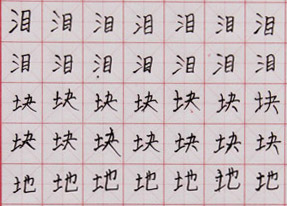 泪泪泪泪泪泪泪
泪泪泪泪泪泪泪
块块块块块块块
块块块块块块块
地地地地地地地